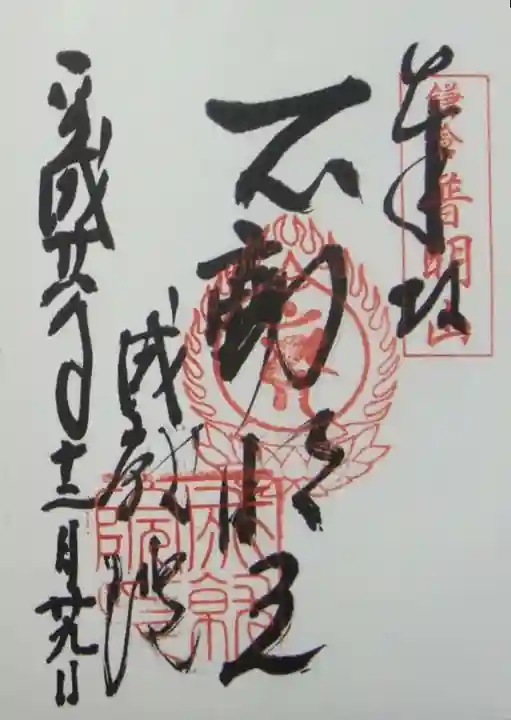 鎌倉普明山
奉拝
不動明王
成就院
平成廿年十二月廿九日